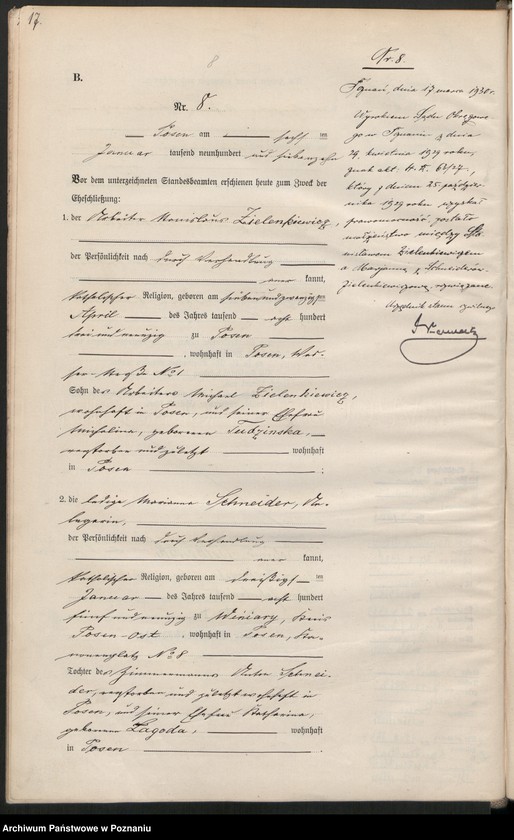 17.
8
B.
Nr. 8.
Posen am sechs ten
Januar tausend neunhundert und siebenzehn
Vor dem unterzeichneten Standesbeamten erschienen heute zum Zweck der
Eheschließung:
1. der Arbeiter Stanislaus Zielenkiewicz,
der Persönlichkeit nach durch Verhandlung
aner kannt,
katholischer Religion, geboren am siebenundzwanzigsten
April des Jahres tausend acht hundert
drei und neunzig zu Posen
, wohnhaft in Posen,
straße No 1
Sohn des Arbeiters Michael Zielenkiewicz,
wohnhaft in Posen, und seiner Ehefrau
Michalina, geborenen Tudzinska,
verstorben und zuletzt wohnhaft
in Posen ;
2. die ledige Marianna Schneider, Ar-
beiterin,
der Persönlichkeit nach durch Verhandlung
aner kannt,
katholischer Religion, geboren am dreißigsten
Januar des Jahres tausend acht hundert
fünf und neunzig zu Winiary, Kreis
Posen-Ost, wohnhaft in Posen,
No 8
Tochter des Zimmermanns Anton Schnei-
der, verstorben und zuletzt wohnhaft in
Posen, und seiner Ehefrau Katharina,
geborenen Lagoda, wohnhaft
in Posen .
Nr. 8.
Poznań, dnia 17 marca 1930 r.
Wyrokiem Sądu Okręgowe-
go w Poznaniu z dnia
24. kwietnia 1929 roku,
który z dniem 25 paździer-
nika 1929 roku, uzyskał
prawomocność, zostało
małżeństwo między Sta-
nisławem Zielenkiewiczem
a Marjanną z Schneiderów
Zielenkiewiczową rozwiązane.
Urzędnik stanu cywilnego
Archiwum Państwowe w Poznaniu